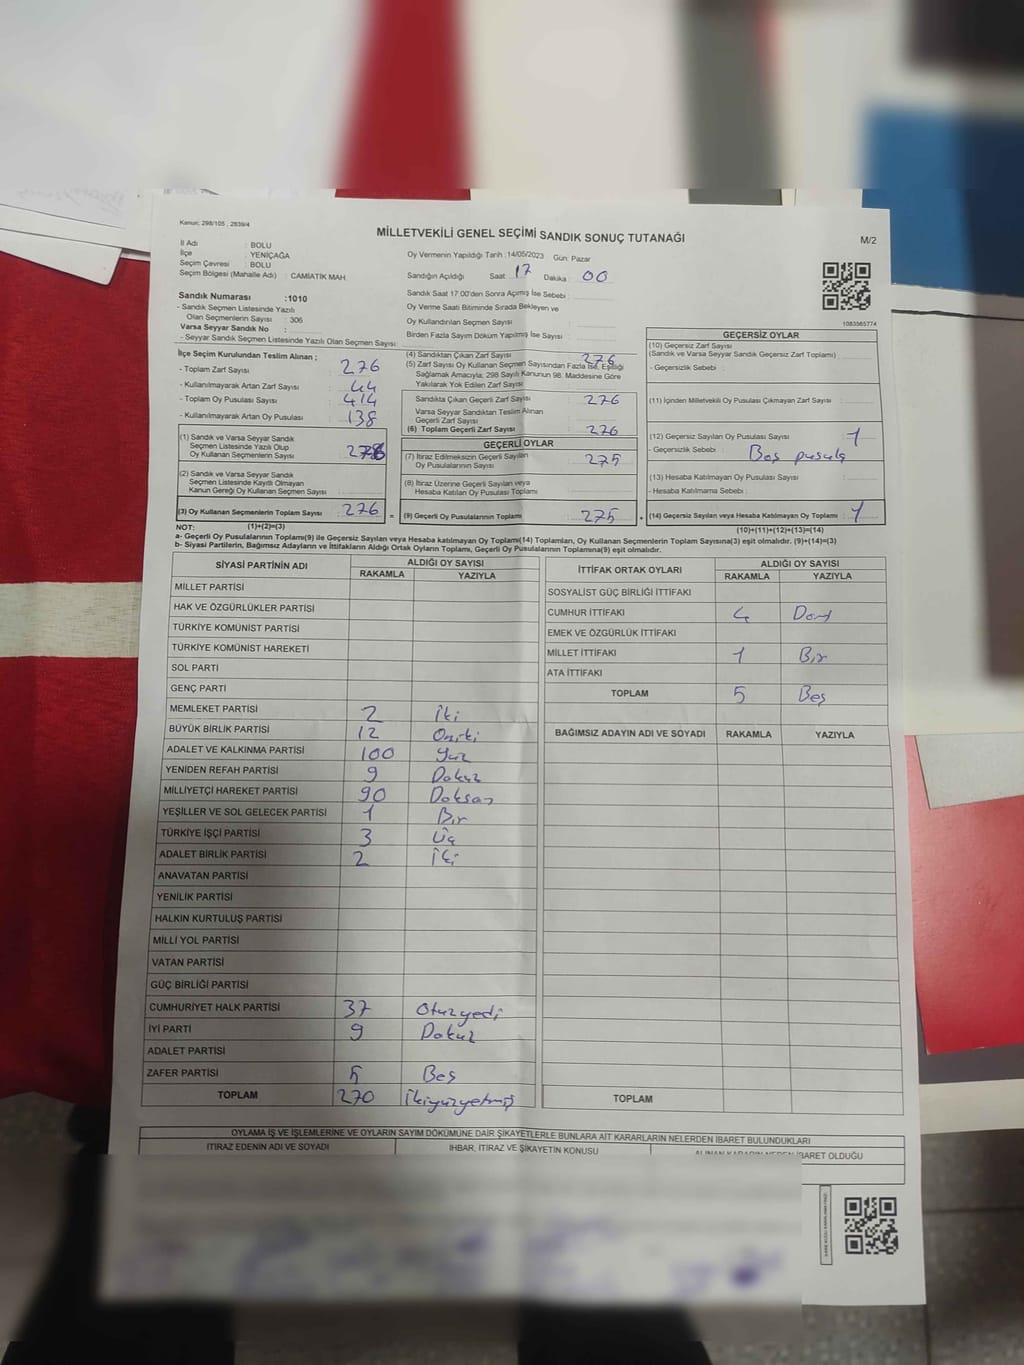 Kanun: 298/105 , 2839/4
MİLLETVEKİLİ GENEL SEÇİMİ SANDIK SONUÇ TUTANAĞI
M/2
İl Adı : BOLU
İlçe : YENİÇAĞA
Seçim Çevresi : BOLU
Seçim Bölgesi (Mahalle Adı) : CAMİATİK MAH.
Oy Vermenin Yapıldığı Tarih :14/05/2023 Gün: Pazar
Sandığın Açıldığı Saat 17 Dakika : 00
Sandık Saat 17:00'den Sonra Açılmış İse Sebebi :
Oy Verme Saati Bitiminde Sırada Bekleyen ve
Oy Kullandırılan Seçmen Sayısı :
Birden Fazla Sayım Döküm Yapılmış İse Sayısı :
1083565774
Sandık Numarası :1010
- Sandık Seçmen Listesinde Yazılı
Olan Seçmenlerin Sayısı : 306
Varsa Seyyar Sandık No :
- Seyyar Sandık Seçmen Listesinde Yazılı Olan Seçmen Sayısı:
İlçe Seçim Kurulundan Teslim Alınan ;
- Toplam Zarf Sayısı : 276
- Kullanılmayarak Artan Zarf Sayısı : 44
- Toplam Oy Pusulası Sayısı : 414
- Kullanılmayarak Artan Oy Pusulası : 138
(1) Sandık ve Varsa Seyyar Sandık
Seçmen Listesinde Yazılı Olup
Oy Kullanan Seçmenlerin Sayısı : 276
(2) Sandık ve Varsa Seyyar Sandık
Seçmen Listesinde Kayıtlı Olmayan
Kanun Gereği Oy Kullanan Seçmen Sayısı :
(3) Oy Kullanan Seçmenlerin Toplam Sayısı : 276
(4) Sandıktan Çıkan Zarf Sayısı : 276
(5) Zarf Sayısı Oy Kullanan Seçmen Sayısından Fazla İse, Eşitliği
Sağlamak Amacıyla; 298 Sayılı Kanunun 98. Maddesine Göre
Yakılarak Yok Edilen Zarf Sayısı :
Sandıkta Çıkan Geçerli Zarf Sayısı : 276
Varsa Seyyar Sandıktan Teslim Alınan
Geçerli Zarf Sayısı :
(6) Toplam Geçerli Zarf Sayısı : 276
GEÇERLİ OYLAR
(7) İtiraz Edilmeksizin Geçerli Sayılan
Oy Pusulalarının Sayısı : 275
(8) İtiraz Üzerine Geçerli Sayılan veya
Hesaba Katılan Oy Pusulası Toplamı :
= (9) Geçerli Oy Pusulalarının Toplamı : 275
GEÇERSİZ OYLAR
(10) Geçersiz Zarf Sayısı
(Sandık ve Varsa Seyyar Sandık Geçersiz Zarf Toplamı) :
- Geçersizlik Sebebi :
(11) İçinden Milletvekili Oy Pusulası Çıkmayan Zarf Sayısı :
(12) Geçersiz Sayılan Oy Pusulası Sayısı : 1
- Geçersizlik Sebebi : Boş pusula
(13) Hesaba Katılmayan Oy Pusulası Sayısı :
- Hesaba Katılmama Sebebi :
+ (14) Geçersiz Sayılan veya Hesaba Katılmayan Oy Toplamı : 1
NOT: (1)+(2)=(3)
(10)+(11)+(12)+(13)=(14)
a- Geçerli Oy Pusulalarının Toplamı(9) ile Geçersiz Sayılan veya Hesaba katılmayan Oy Toplamı(14) Toplamları, Oy Kullanan Seçmenlerin Toplam Sayısına(3) eşit olmalıdır. (9)+(14)=(3)
b- Siyasi Partilerin, Bağımsız Adayların ve İttifakların Aldığı Ortak Oyların Toplamı, Geçerli Oy Pusulalarının Toplamına(9) eşit olmalıdır.
SİYASİ PARTİNİN ADI ALDIĞI OY SAYISI
RAKAMLA YAZIYLA
MİLLET PARTİSİ
HAK VE ÖZGÜRLÜKLER PARTİSİ
TÜRKİYE KOMÜNİST PARTİSİ
TÜRKİYE KOMÜNİST HAREKETİ
SOL PARTİ
GENÇ PARTİ
MEMLEKET PARTİSİ 2 İki
BÜYÜK BİRLİK PARTİSİ 12 Oniki
ADALET VE KALKINMA PARTİSİ 100 Yüz
YENİDEN REFAH PARTİSİ 9 Dokuz
MİLLİYETÇİ HAREKET PARTİSİ 90 Doksan
YEŞİLLER VE SOL GELECEK PARTİSİ 1 Bir
TÜRKİYE İŞÇİ PARTİSİ 3 Üç
ADALET BİRLİK PARTİSİ 2 İki
ANAVATAN PARTİSİ
YENİLİK PARTİSİ
HALKIN KURTULUŞ PARTİSİ
MİLLİ YOL PARTİSİ
VATAN PARTİSİ
GÜÇ BİRLİĞİ PARTİSİ
CUMHURİYET HALK PARTİSİ 37 Otuzyedi
İYİ PARTİ 9 Dokuz
ADALET PARTİSİ
ZAFER PARTİSİ 5 Beş
TOPLAM 270 İkiyüzyetmiş
İTTİFAK ORTAK OYLARI ALDIĞI OY SAYISI
RAKAMLA YAZIYLA
SOSYALİST GÜÇ BİRLİĞİ İTTİFAKI
CUMHUR İTTİFAKI 4 Dört
EMEK VE ÖZGÜRLÜK İTTİFAKI
MİLLET İTTİFAKI 1 Bir
ATA İTTİFAKI
TOPLAM 5 Beş
BAĞIMSIZ ADAYIN ADI VE SOYADI RAKAMLA YAZIYLA
TOPLAM
OYLAMA İŞ VE İŞLEMLERİNE VE OYLARIN SAYIM DÖKÜMÜNE DAİR ŞİKAYETLERLE BUNLARA AİT KARARLARIN NELERDEN İBARET BULUNDUKLARI
İTİRAZ EDENİN ADI VE SOYADI İHBAR, İTİRAZ VE ŞİKAYETİN KONUSU ALINAN KARARIN NEDEN İBARET OLDUĞU